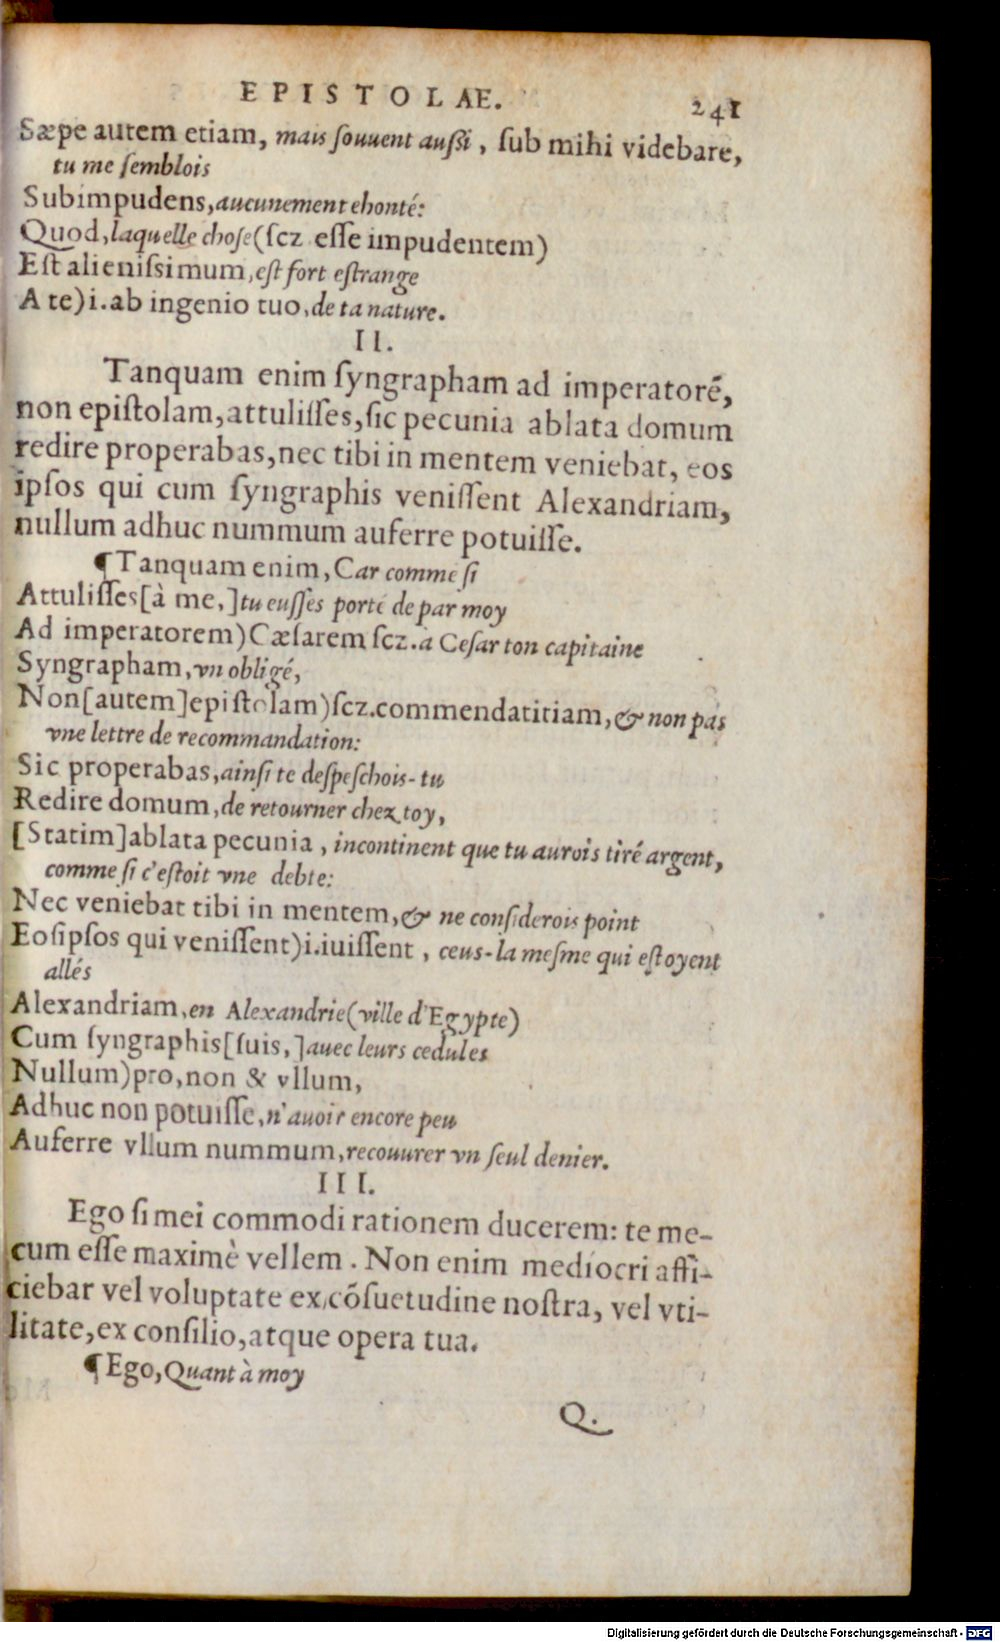 EPISTOLAE. 241
Sæpe autem etiam, mais ſouuent auſſi, ſub mihi videbare,
tu me ſemblois
Subimpudens, aucunement ehonté:
Quod, laquelle choſe (ſcz eſſe impudentem)
Eſt alieniſsimum, eſt fort eſtrange
A te) i. ab ingenio tuo, de ta nature.
II.
Tanquam enim ſyngrapham ad imperatorẽ,
non epiſtolam, attuliſſes, ſic pecunia ablata domum
redire properabas, nec tibi in mentem veniebat, eos
ipſos qui cum ſyngraphis veniſſent Alexandriam,
nullum adhuc nummum auferre potuiſſe.
¶Tanquam enim, Car comme ſi
Attuliſſes [à me,] tu euſſes porté de par moy
Ad imperatorem) Cæſarem ſcz. a Ceſar ton capitaine
Syngrapham, vn obligé,
Non [autem] epiſtolam) ſcz. commendatitiam, & non pas
vne lettre de recommandation:
Sic properabas, ainſi te deſpeſchois-tu
Redire domum, de retourner chez toy,
[Statim] ablata pecunia, incontinent que tu aurois tiré argent,
comme ſi c'eſtoit vne debte:
Nec veniebat tibi in mentem, & ne conſiderois point
Eos ipſos qui veniſſent) i. iuiſſent, ceus-la meſme qui eſtoyent
allés
Alexandriam, en Alexandrie (ville d'Egypte)
Cum ſyngraphis [ſuis,] auec leurs cedules
Nullum) pro, non & vllum,
Adhuc non potuiſſe, n'auoir encore peu
Auferre vllum nummum, recouurer vn ſeul denier.
III.
Ego ſi mei commodi rationem ducerem: te me-
cum eſſe maximè vellem. Non enim mediocri affi-
ciebar vel voluptate ex cõſuetudine noſtra, vel vti-
litate, ex conſilio, atque opera tua.
¶Ego, Quant à moy
Q.
Digitalisierung gefördert durch die Deutsche Forschungsgemeinschaft - DFG